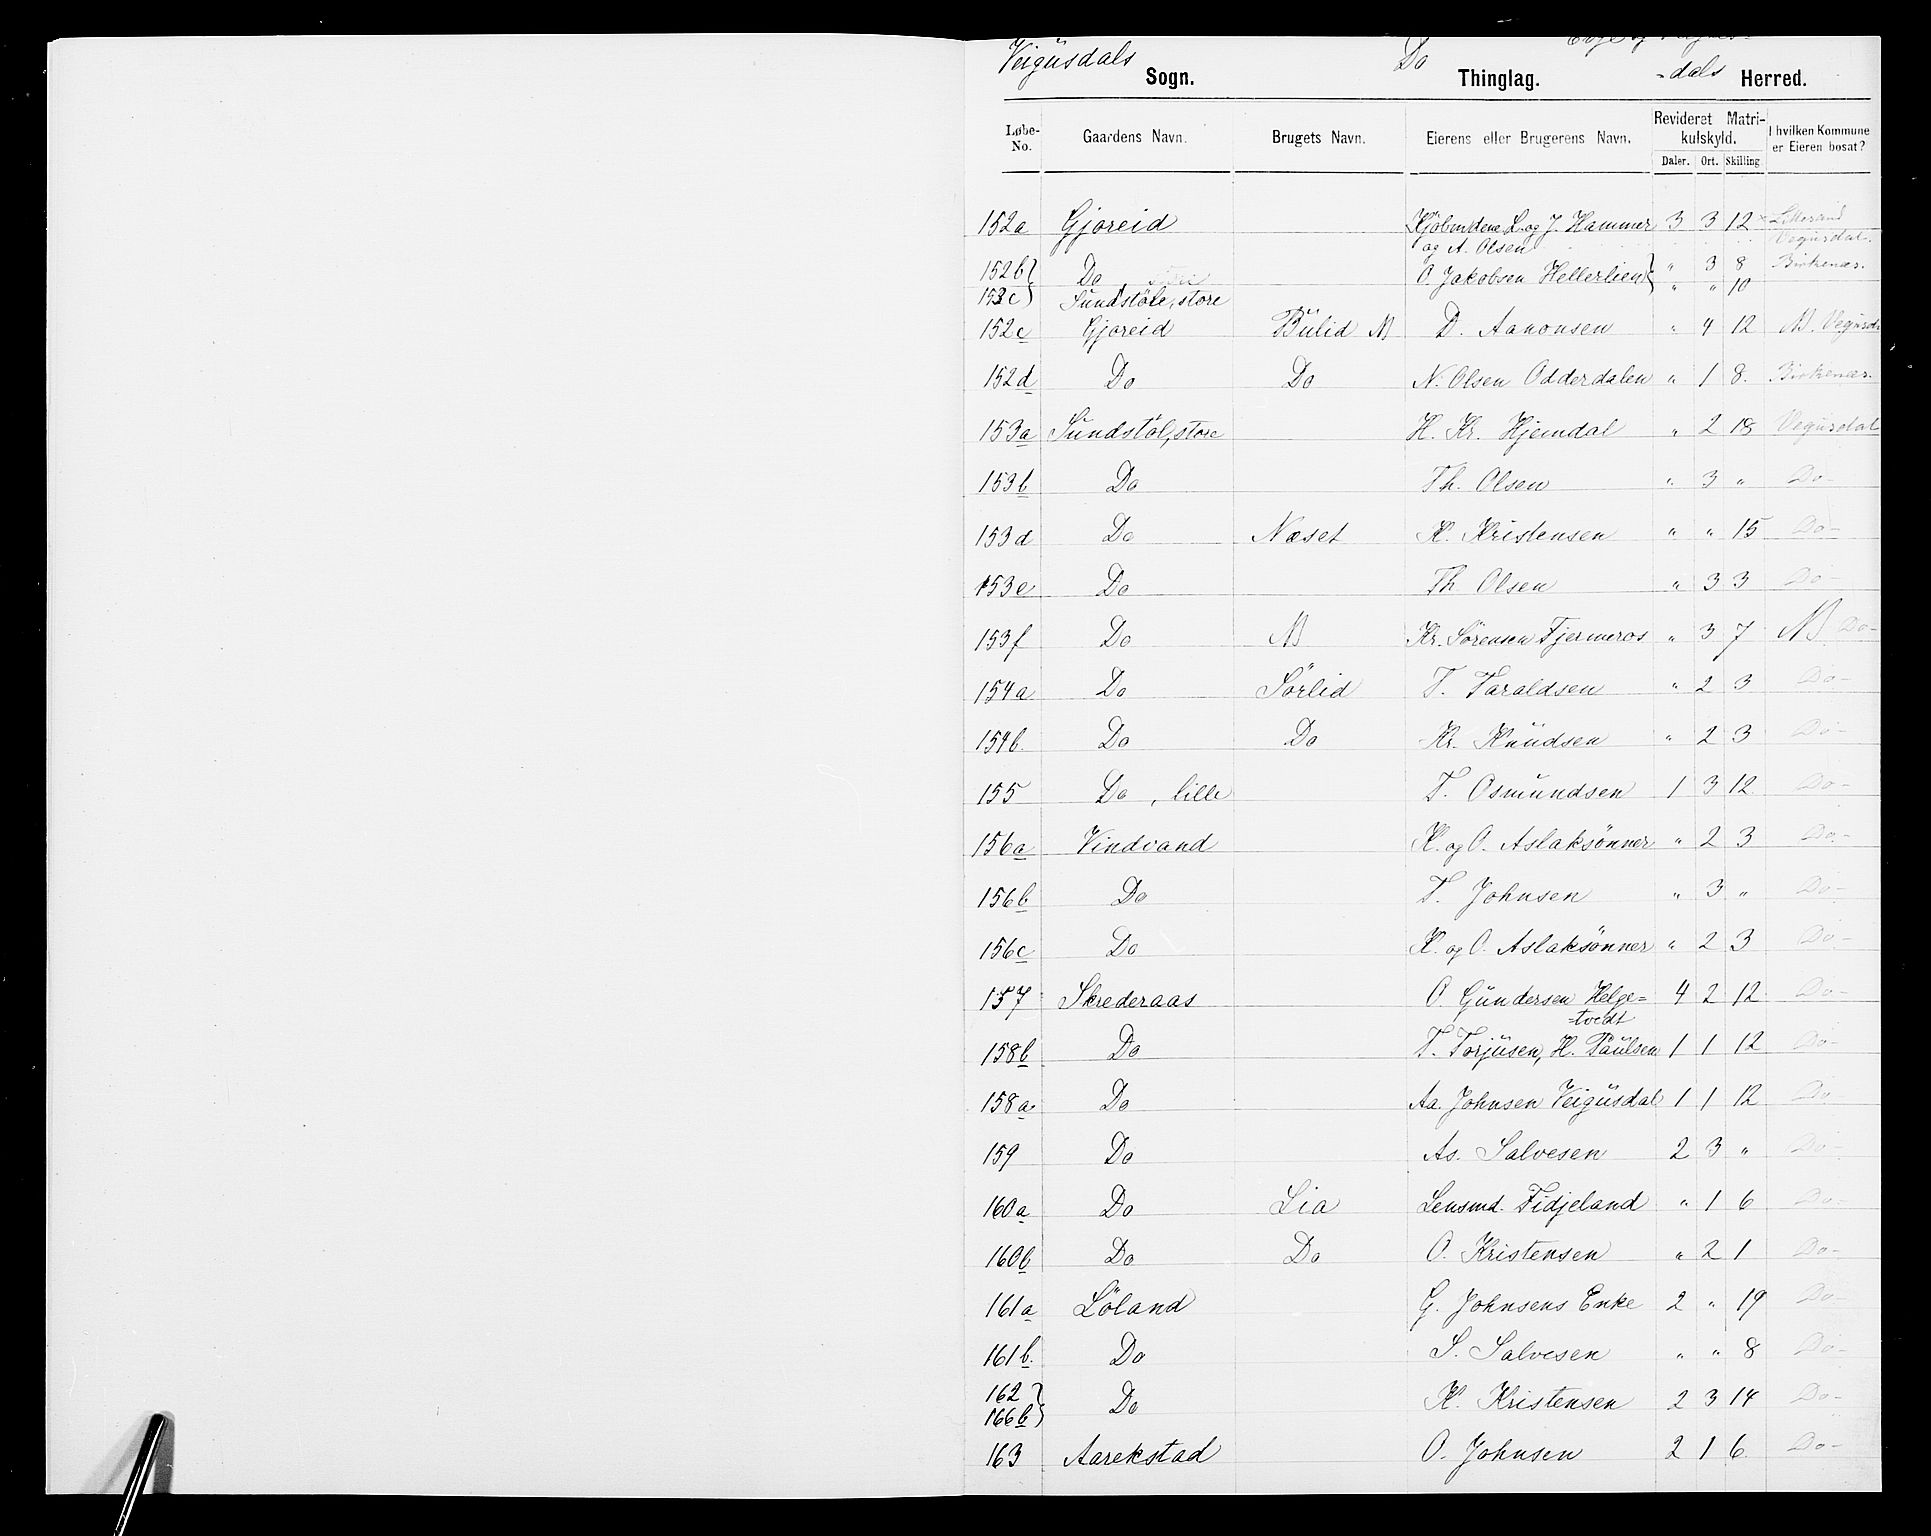 Veigusdals Sogn. Do Thinglag. -dals Herred.
Løbe-No. Gaardens Navn. Brugets Navn. Eierens eller Brugerens Navn. Revideret Matrikulskyld. Daler. Ort. Skilling I hvilken Kommune er Eieren bosat?
152a Gjoreid Kjöbmdene L. og J. Hammer 3 3 12 Lillesand
og A. Olsen Vegusdal.
152b } Do O. Jakobsen Hellerlien } " 3 8 Birkenæs.
153c } Sundstöle, store " " 10
152c Gjoreid Bulid NB D. Aanonsen " 4 12 NB. Vegusd
152d Do Do N. Olsen Odderdalen " 1 8. Birkenæs.
153a Sundstöl, store H. Kr. Hjemdal " 2 18 Vegusdal
153b Do Th. Olsen " 3 " Do-
153d Do Næset K. Kristensen " " 15 Do-
153e Do Th. Olsen " 3 3 Do-
153f Do NB Kr. Sörensen Fjermeros " 3 7 NB Do-
154a Do Sörlid T. Taraldsen " 2 3 Do-
154b. Do Do Kr. Knudsen " 2 3 Do-
155 Do , lille T. Osmundsen 1 3 12 Do-
156a Vindvand K. og O. Aslaksönner " 2 3 Do.-
156b Do T. Johnsen " 3 " Do-
156c Do K. og O. Aslaksönner " 2 3 Do-
157 Skrederaas O. Gundersen Helge= 4 2 12 Do-
=tvedt
158b Do T. Torjusen, H. Paulsen 1 1 12 Do-
158a Do Aa. Johnsen Veigusdal 1 1 12 Do
159 Do As. Salvesen 2 3 " Do-
160a Do Lia Lensmd. Fidjeland " 1 6 Do-
160b Do Do O. Kristensen " 2 1 Do-
161a Löland G. Johnsens Enke 2 " 19 Do-
161b. Do S. Salvesen " " 8 Do-
162 }
166b } Do K. Kristensen 2 3 14 Do-
163 Aarekstad O. Johnsen 2 1 6 Do-